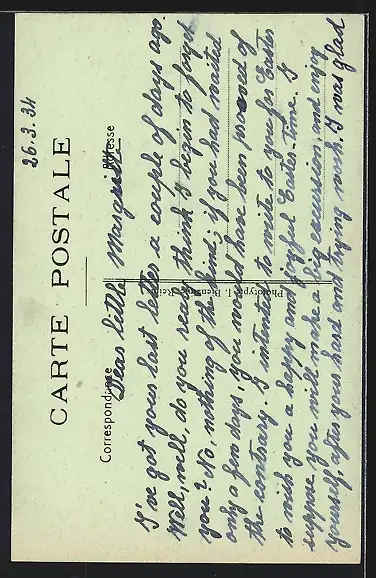 26.3.34
CARTE POSTALE
Correspondance
Adresse
Dear little Marguitte
I've got your last letter a couple of days ago.
Well, well, do you really think I begin to forget
you? No, nothing of the kind; if you had waited
only a few days, you would have been prooved of
the contrary. I intended to write to you for Easter
to wish you a happy and joyful Easter-time. I
suppose you will make a big excursion, and enjoy
yourself, after your hard and trying work. I was glad
Phototypie J. Bienaimé, Reims